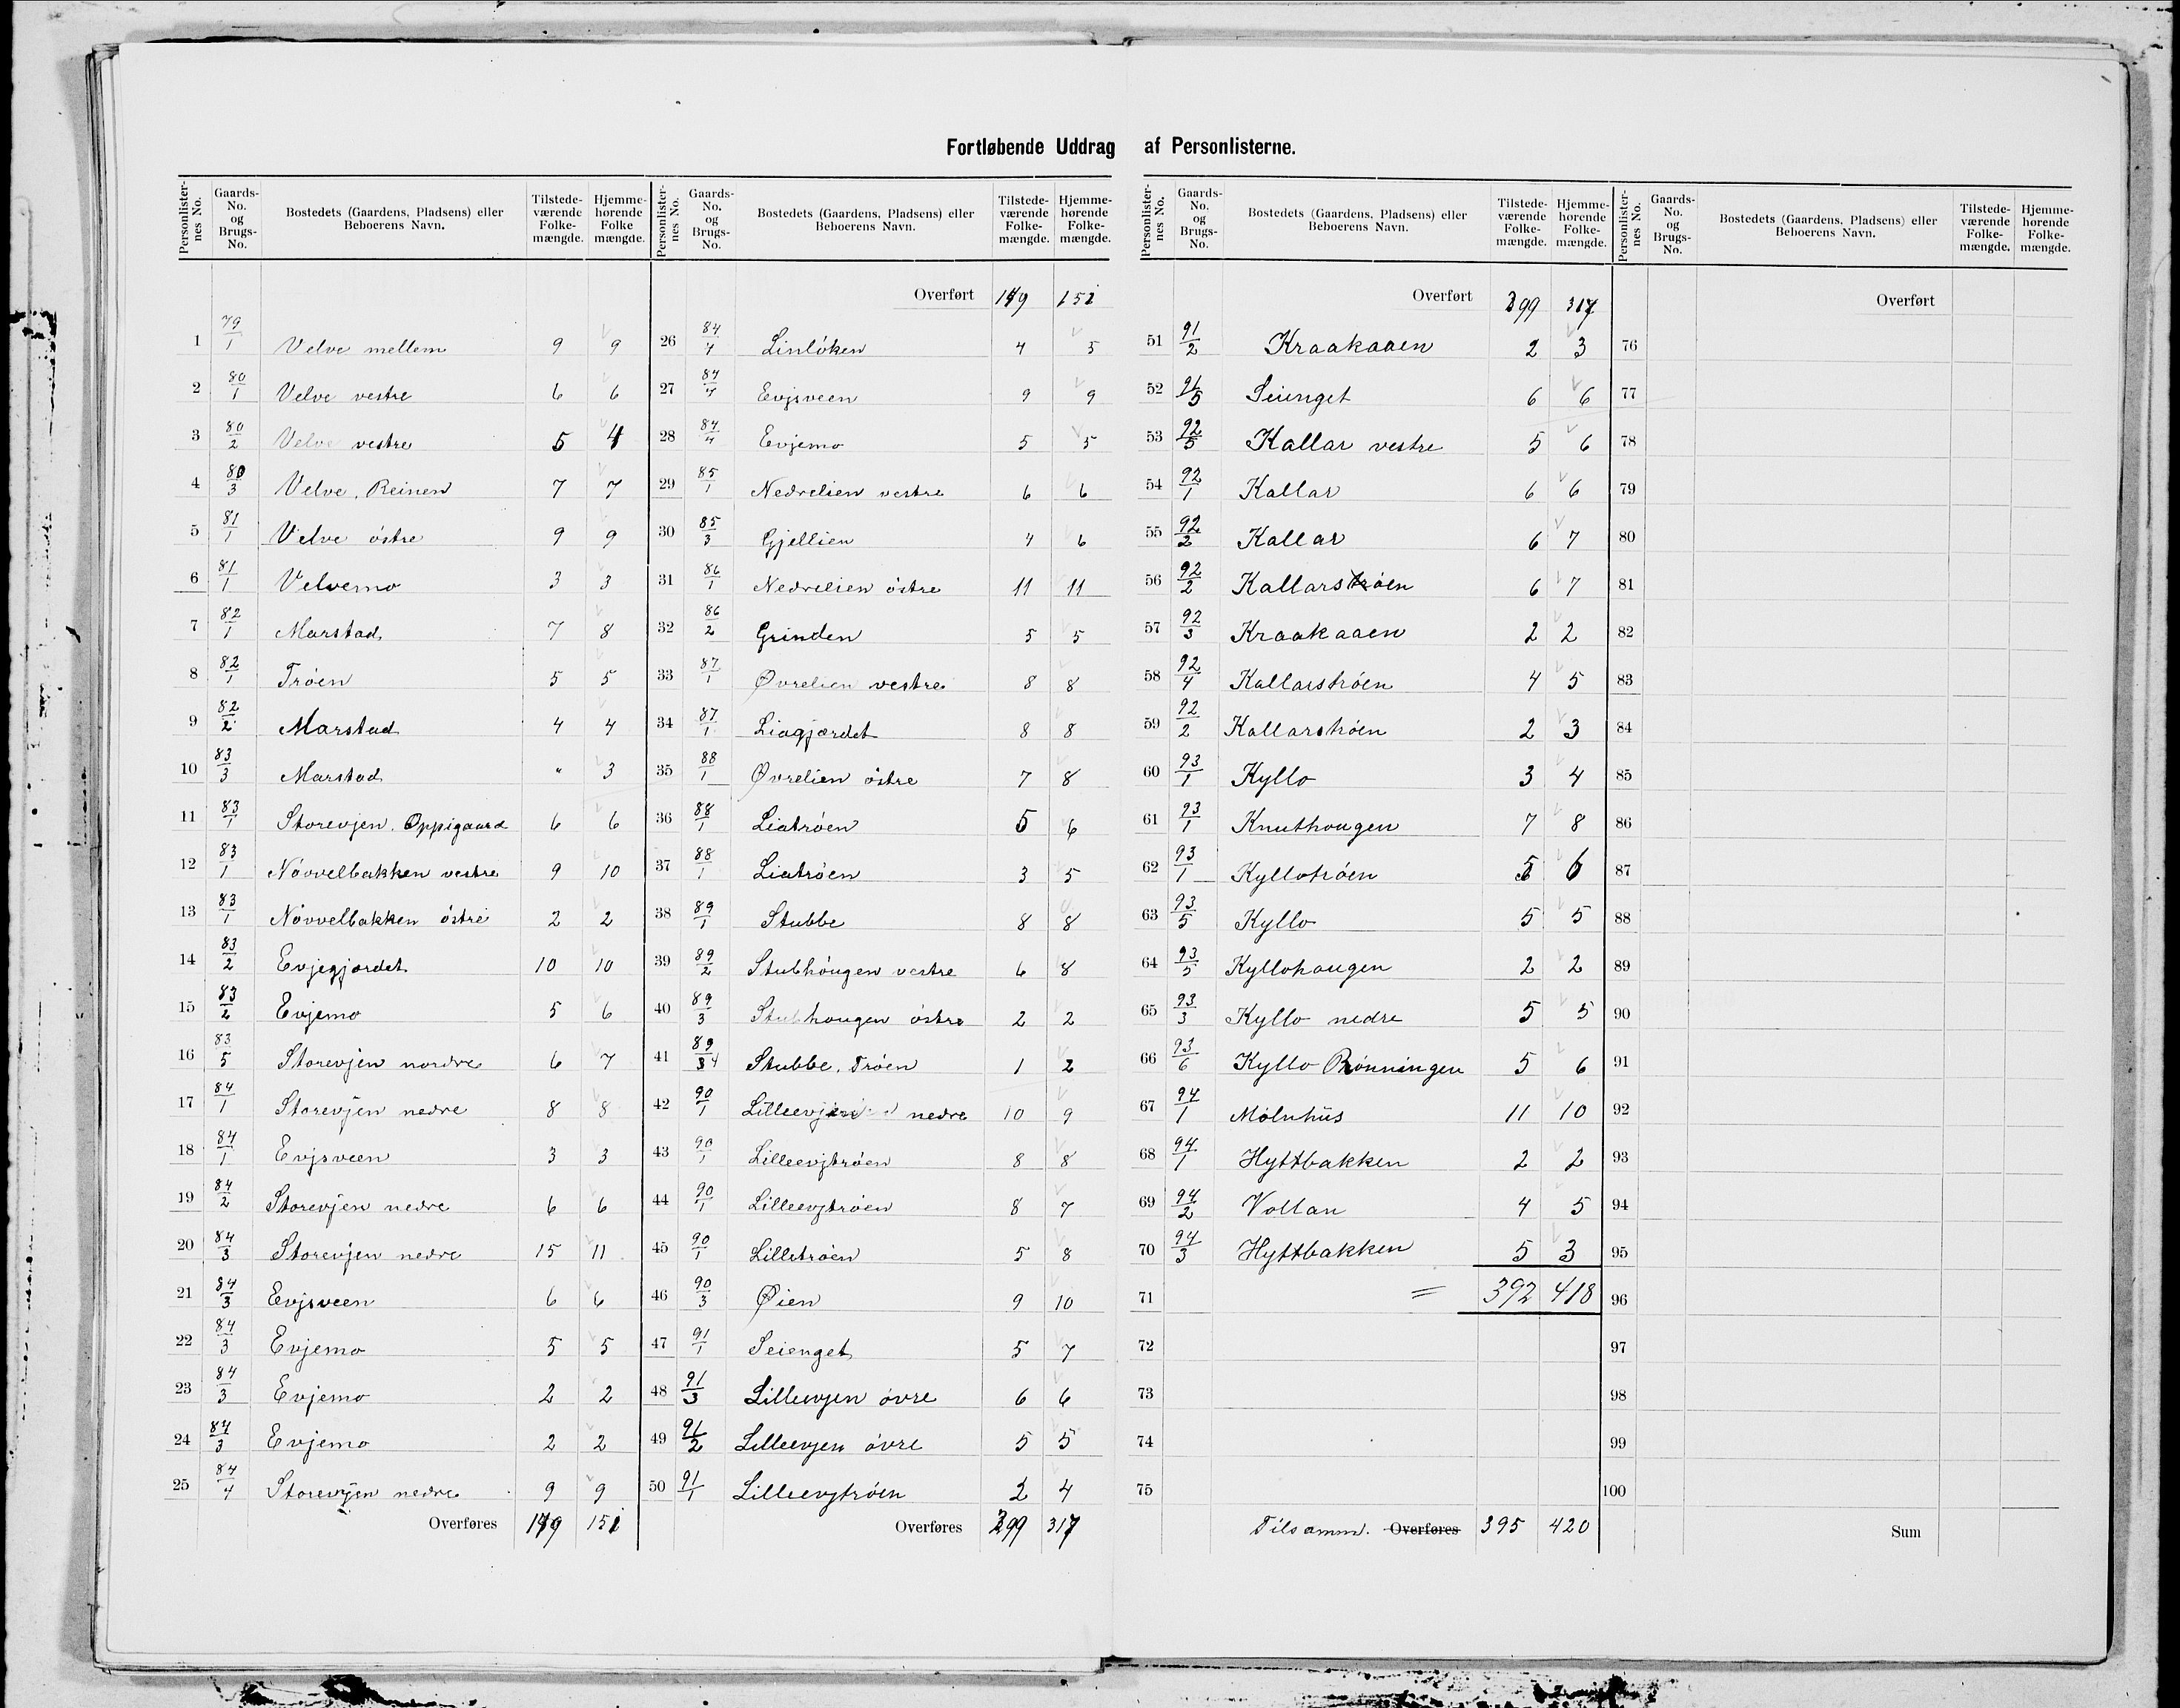 Fortløbende Uddrag af Personlisterne.
Personlisternes No. | Gaards-No. og Brugs-No. | Bostedets (Gaardens, Pladsens) eller Beboerens Navn. | Tilstedeværende Folkemængde. | Hjemmehørende Folkemængde.
1 79/1 Velve mellem 9 9
2 80/1 Velve vestre 6 6
3 80/2 Velve vestre 5 4
4 80/3 Velve, Reinen 7 7
5 81/1 Velve östre 9 9
6 81/1 Velvemo 3 3
7 82/1 Marstad 7 8
8 82/1 Tröen 5 5
9 82/2 Marstad 4 4
10 83/3 Marstad " 3
11 83/1 Storevjen, Oppigaard 6 6
12 83/1 Növvelbakken vestre 9 10
13 83/1 Növvelbakken östre 2 2
14 83/2 Evjegjordet 10 10
15 83/2 Evjemo 5 6
16 83/5 Storevjen nordre 6 7
17 84/1 Storevjen nedre 8 8
18 84/1 Evjsveen 3 3
19 84/2 Storevjen nedre 6 6
20 84/3 Storevjen nedre 15 11
21 84/3 Evjsveen 6 6
22 84/3 Evjemo 5 5
23 84/3 Evjemo 2 2
24 84/3 Evjemo 2 2
25 84/4 Storevjen nedre 9 9
Overføres 151
Personlisternes No. | Gaards-No. og Brugs-No. | Bostedets (Gaardens, Pladsens) eller Beboerens Navn. | Tilstedeværende Folkemængde. | Hjemmehørende Folkemængde.
Overført 151
26 84/4 Linlöken 4 5
27 84/4 Evjsveen 9 9
28 84/4 Evjemo 5 5
29 85/1 Nedrelien vestre 6 6
30 85/3 Gjellien 4 6
31 86/1 Nedrelien östre 11 11
32 86/2 Grinden 5 5
33 87/1 Øvrelien vestre 8 8
34 87/1 Liagjordet 8 8
35 88/1 Øvrelien östre 7 8
36 88/1 Liatröen 5 6
37 88/1 Liatröen 3 5
38 89/1 Stubbe 8 8
39 89/2 Stubhöugen vestre 6 8
40 89/3 Stubhougen östre 2 2
41 89/4 Stubbe, Tröen 1 2
42 90/1 Lilleevjen nedre 10 9
43 90/1 Lilleevjtröen 8 8
44 90/1 Lilleevjtröen 8 7
45 90/1 Lilletröen 5 8
46 90/3 Øien 9 10
47 91/1 Seienget 5 7
48 91/3 Lilleevjen övre 6 6
49 91/2 Lilleevjen övre 5 5
50 91/1 Lilleevjtröen 2 4
Overføres 299 317
Personlisternes No. | Gaards-No. og Brugs-No. | Bostedets (Gaardens, Pladsens) eller Beboerens Navn. | Tilstedeværende Folkemængde. | Hjemmehørende Folkemængde.
Overført 299 317
51 91/2 Kraakaaen 2 3
52 91/5 Seienget 6 6
53 92/5 Kallar vestre 5 6
54 92/1 Kallar 6 6
55 92/2 Kallar 6 7
56 92/2 Kallarströen 6 7
57 92/3 Kraakaaen 2 2
58 92/4 Kallarströen 4 5
59 92/2 Kallarströen 2 3
60 93/1 Kyllo 3 4
61 93/1 Knuthougen 7 8
62 93/1 Kyllotröen 5 6
63 93/5 Kyllo 5 5
64 93/5 Kyllohaugen 2 2
65 93/3 Kyllo nedre 5 5
66 93/6 Kyllo Rönningen 5 6
67 94/1 Molnhus 11 10
68 94/1 Hyttbakken 2 2
69 94/2 Vollan 4 5
70 94/3 Hyttbakken 5 3
71 = 392 418
72
73
74
75
Tilsamm. Overføres 395 420
Personlisternes No. | Gaards-No. og Brugs-No. | Bostedets (Gaardens, Pladsens) eller Beboerens Navn. | Tilstedeværende Folkemængde. | Hjemmehørende Folkemængde.
Overført
76
77
78
79
80
81
82
83
84
85
86
87
88
89
90
91
92
93
94
95
96
97
98
99
100
Sum